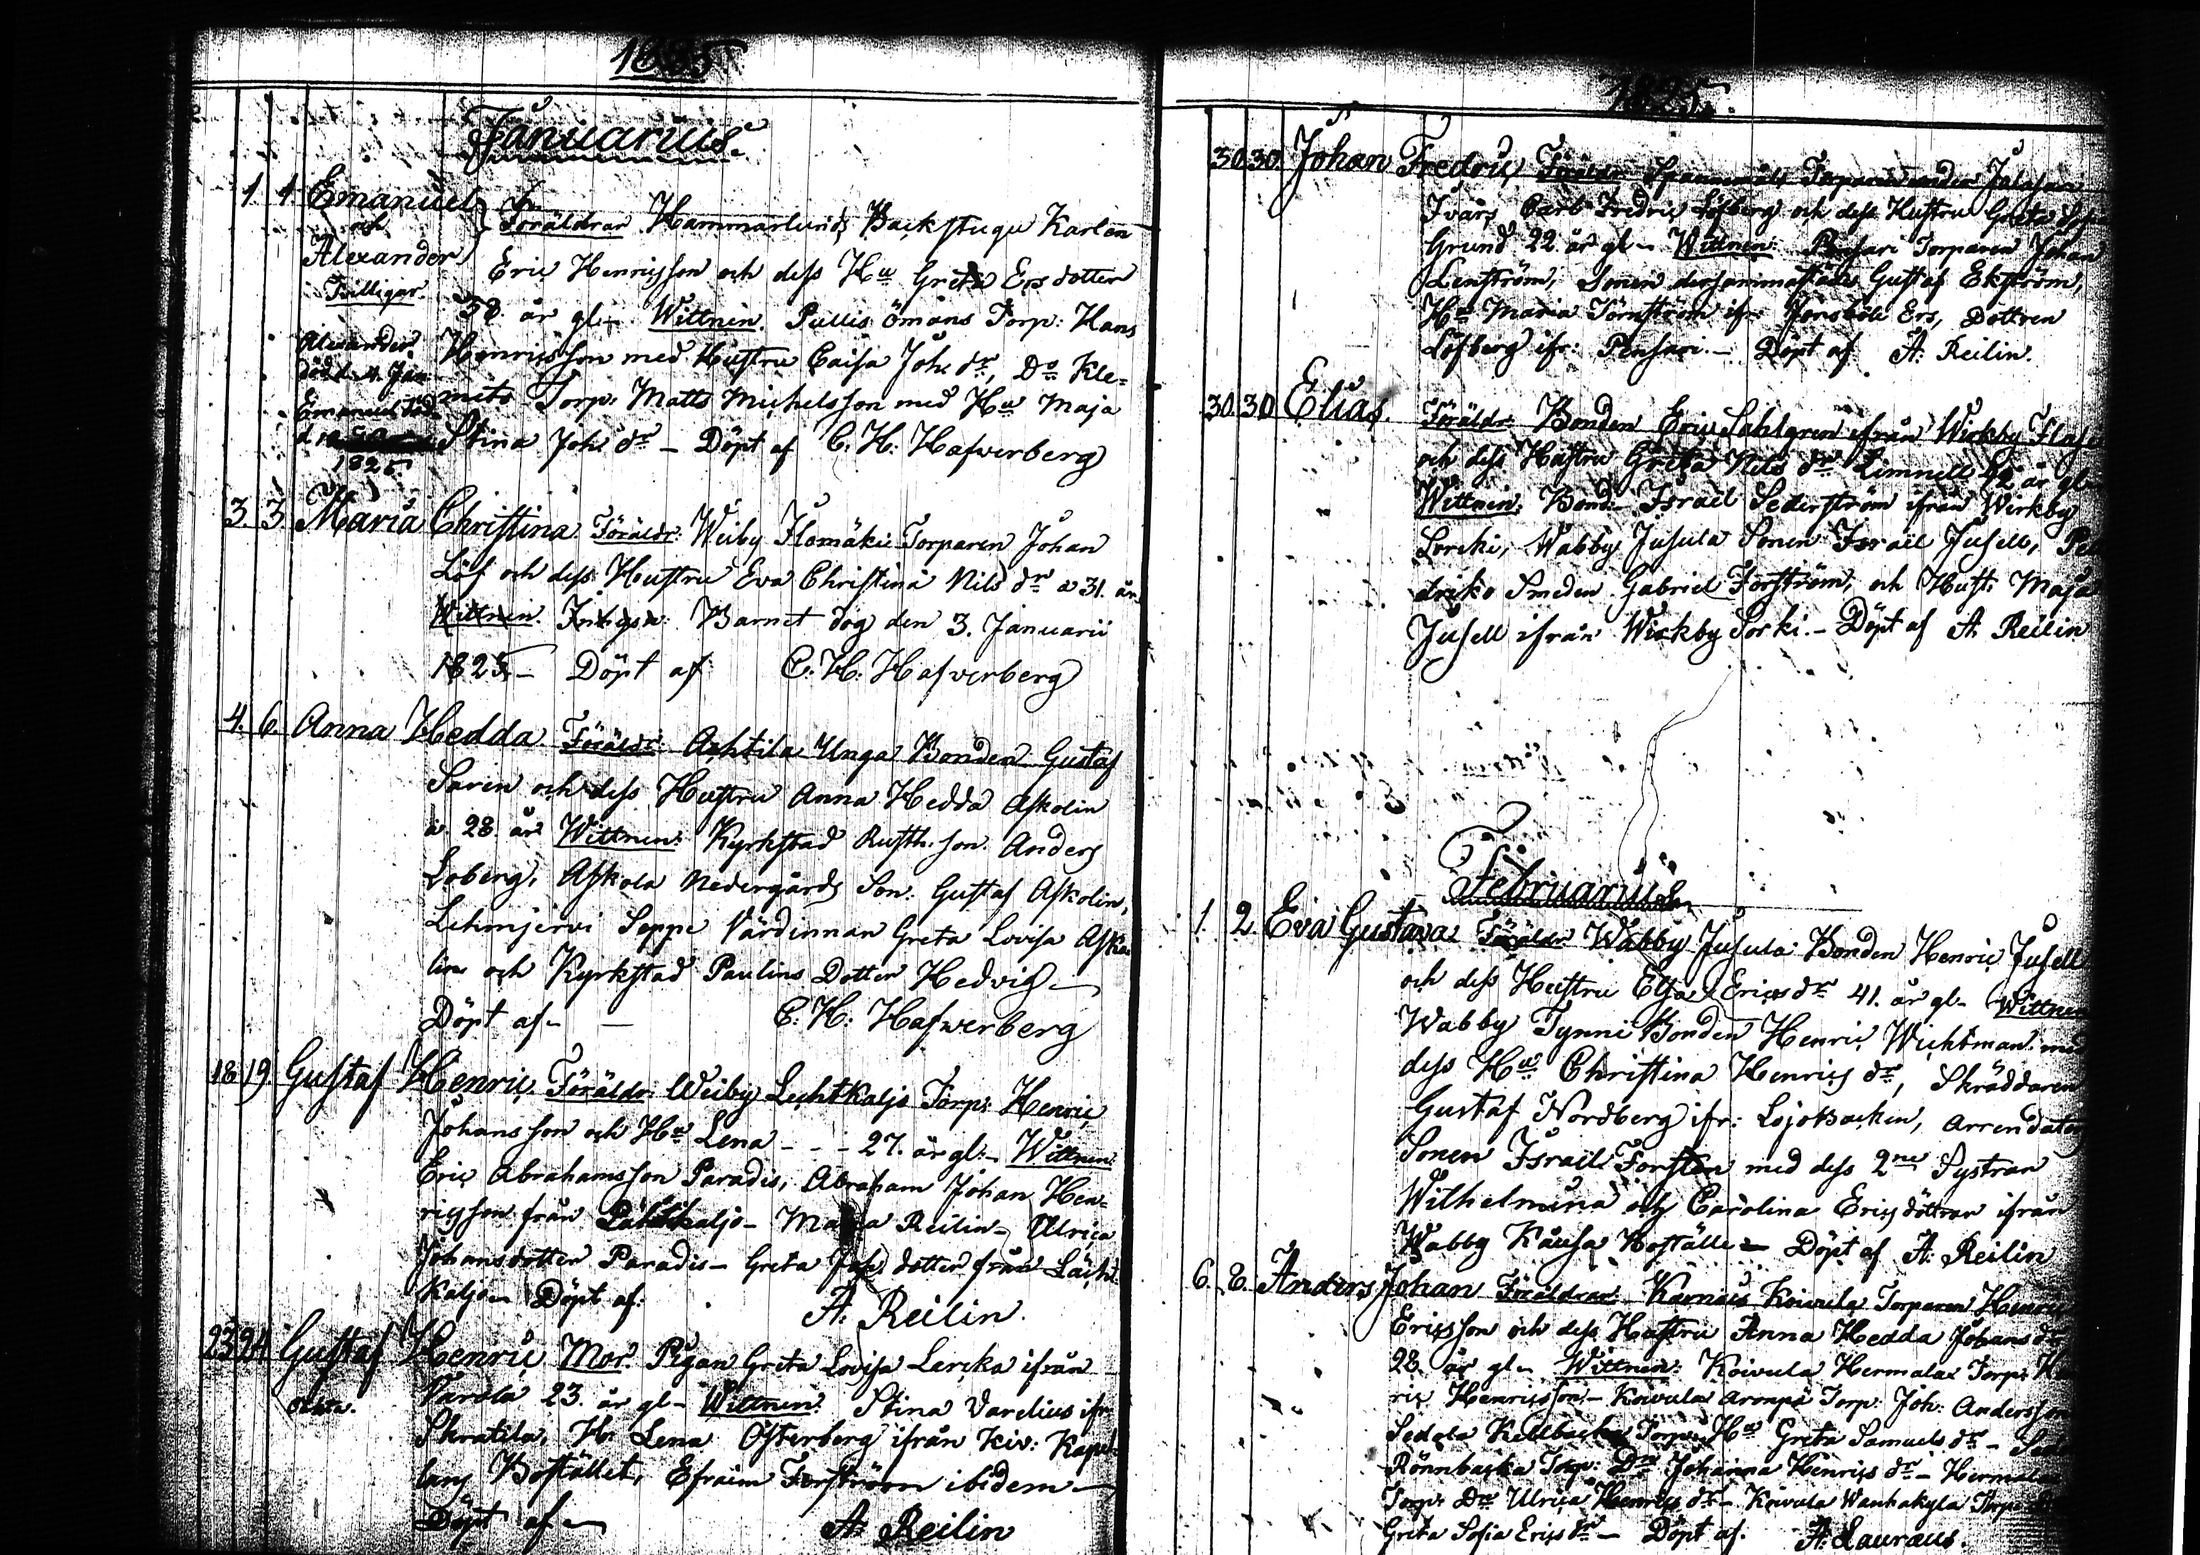 Januarius.
1 1 Emanuel
och
Alexander
Tvillingar.
Föräldrar Hammarlunds Backstugu Karlen
Eric Henricsson och dess Hu Greta Ersdotter
38 år gl. Wittnen. Pullis Ömans Torp: Hans
Henricsson med Hustru Caisa Joh: dr, Do Kle=
mets Torp: Matts Michelsson med Hu Maja
Stina Joh: dr – Döpt af C. H. Hafverberg
Alexander
död d. 4 Jan
Emanuel död
1825
3. 3. Maria Christina Föräldr: Weiby Flomäki Torparen Johan
Löf och dess Hustru Eva Christina Nils dr a 31. år
Wittnen. Inga. Barnet dog den 3. Januarii
1825 – Döpt af C. H. Hafverberg
4. 6. Anna Hedda Föräldr: Ahtila Unga Bonden Gustaf
Saren och dess Hustru Anna Hedda Askolin
a. 28. år Wittnen: Kyrkstad Rusth. son Anders
Loberg, Askola Nedergårds Son: Gustaf Askolin,
Lehmjervi Seppe Värdinnan Greta Lovisa Asko
lin och Kyrkstad Paulins Dotter Hedvig –
Döpt af – C. H. Hafverberg
18 19. Gustaf Henric Föräldr: Weiby Lechtkaljo Torp: Henric
Johansson och Hu Lena - - - 27. år gl. – Wittnen
Eric Abrahamsson Paradis, Abraham Johan Hen=
ricsson från – Maria Reilin – Ulrica
Johansdotter Paradis – Greta Joh: dotter från Lächt
kaljo – Döpt af: A. Reilin.
23 24 Gustaf Henric Mor. Pigan Greta Lovisa Lercka ifrån
Varola 23. år gl – Wittnen: Stina Varelius ifr
Skratila, Hr Lena Österberg ifrån Kiv: Kapel
lans Bostället, Efraim Forström ibidem –
Oäkta.
Döpt af – A. Reilin
1825.
30. 30. Johan Fredric Föräldr: Torparen Johan
Ivars Carl Fredric Löfberg och dess Hustru Greta
Grund 22 år gl – Wittnen: Pensari Torparen Johan
Lenström, Sonen dersammastädes Gustaf Ekström,
Hu Maria Törnström ifr: Jönsböle Ers, Dottren
Löfberg ifr: Pensari. – Döpt af A. Reilin.
30. 30 Elias. Föräldr: Bonden Eric Sahlgren ifrån Wirkby
och dess Hustru Greta Nils dr Limnell 42 år gl –
Wittnen: Bond: Israel Sederström ifrån Wirkby
Lorcki, Wabby Jusula Sonen Israel Jusell,
Smeden Gabriel Forström, och Hust: Maja
Jusell ifrån Wirkby Sorki. – Döpt af A. Reilin
Februarius
1. 2 Eva Gustava Föräldr: Wabby Jusula Bonden Henric Jusell
och dess Hustru Elsa Erics dr 41. år gl – Wittnen
Wabby Tynni Bonden Henric Wichtman med
dess Hu Christina Henrics dr, Skräddaren
Gustaf Nordberg ifr: Lojobacken, Arrendator
Sonen Israel Forsten med dess 2ne Systrar
Wilhelmina och Carolina Ericsdöttrar ifrån
Wabby Kausa Boställe – Döpt af A. Reilin
6. 8. Anders Johan Föräldrar Kärnais Koivula Torparen Henric
Ericsson och dess Hustru Anna Hedda Johans dr
28. år gl – Wittnen: Koivula Hermala Torp:
ric Henricsson – Koivula Arompä Torp: Joh: Andersson
Sedola Torp: Hu Greta Samuels dr –
Rönnbacka Torp: Dr Johanna Henrics dr – Hermala
Torp: Dr Ulrica Henrics dr – Koivula Wanhakyla Torp:
Greta Sofia Erics dr – Döpt af. A. Lauraeus.